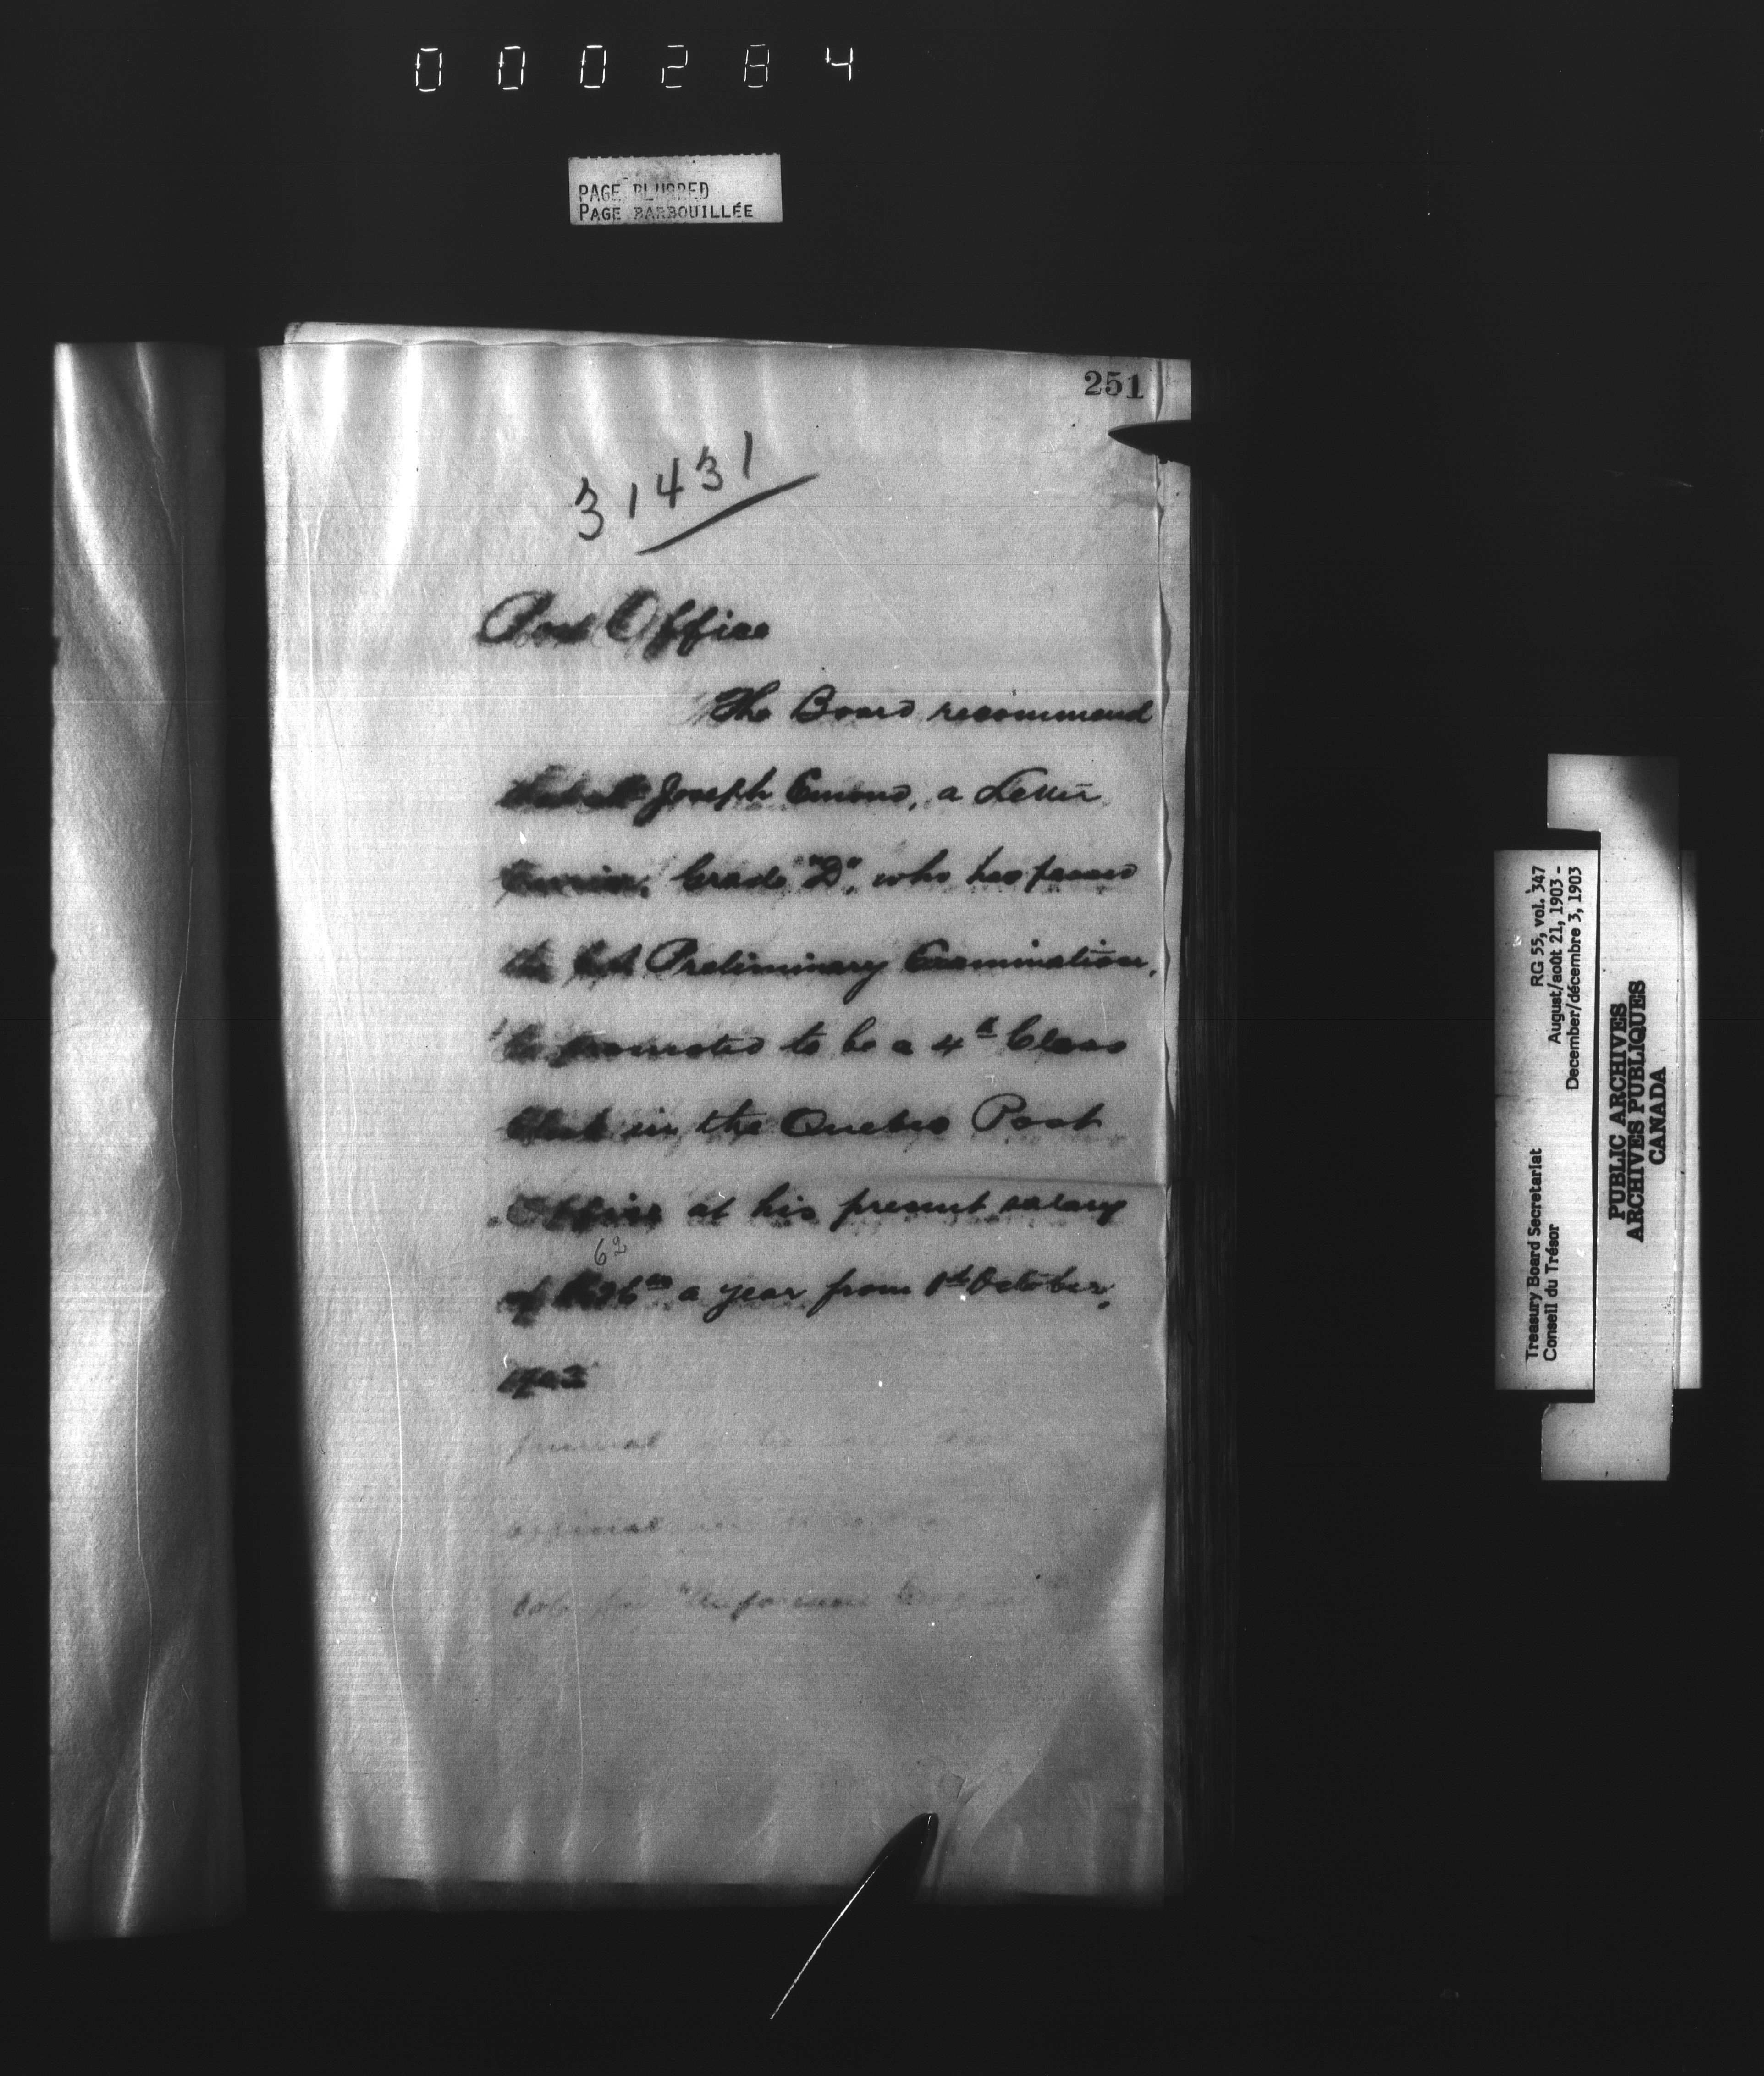 000284
PAGE BLURRED
PAGE BARBOUILLÉE
251
31431
Post Office
The Board recommend
that Mr Joseph Emond, a Letter
Carrier, Grade "D", who has passed
the C.S. Preliminary Examination,
be promoted to be a 4th Class
Clerk in the Quebec Post
Office at his present salary
62
of a year from 1st October,
1903
official
for
RG 55, vol. 347
August/août 21, 1903 -
December/décembre 3, 1903
Treasury Board Secretariat
Conseil du Trésor
PUBLIC ARCHIVES
ARCHIVES PUBLIQUES
CANADA